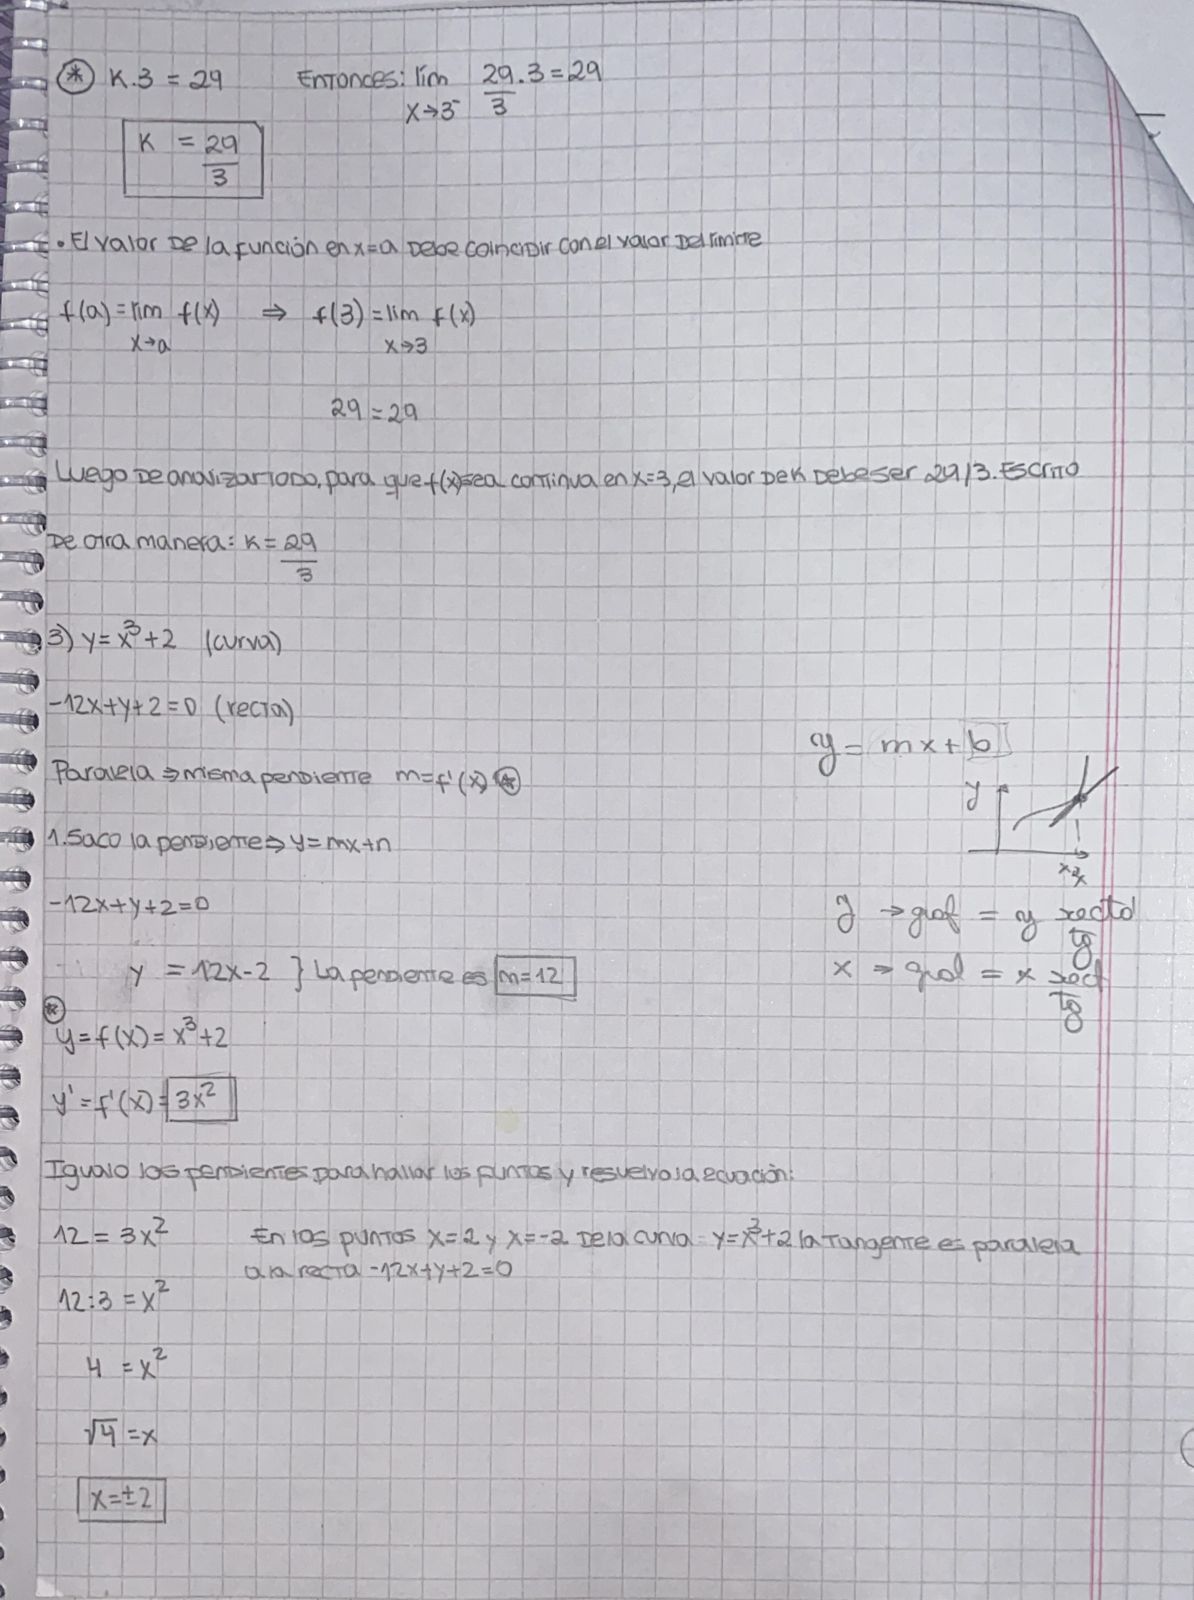 * K.3 = 29 Entonces: lim 29/3 . 3 = 29
x→3⁻
K = 29/3
• El valor de la función en x=a debe coincidir con el valor del limite
f(a) = lim f(x) ⇒ f(3) = lim f(x)
x→a x→3
29 = 29
Luego de analizar todo, para que f(x) sea continua en x=3, el valor de K debe ser 29/3. Escrito
de otra manera: K = 29/3
3) y = x³+2 (curva)
-12x+y+2=0 (recta)
y = mx+b
Paralela ⇒ misma pendiente m=f'(x) *
y
1. Saco la pendiente ⇒ y=mx+n
x
-12x+y+2=0
y → graf = y recta tg
y = 12x-2 } La pendiente es m=12
x → graf = x rect tg
*
y = f(x) = x³+2
y' = f'(x) = 3x²
Igualo las pendientes para hallar los puntos y resuelvo la ecuación:
12 = 3x² En los puntos x=2 y x=-2 de la curva y=x³+2 la tangente es paralela
a la recta -12x+y+2=0
12:3 = x²
4 = x²
√4 = x
x=±2